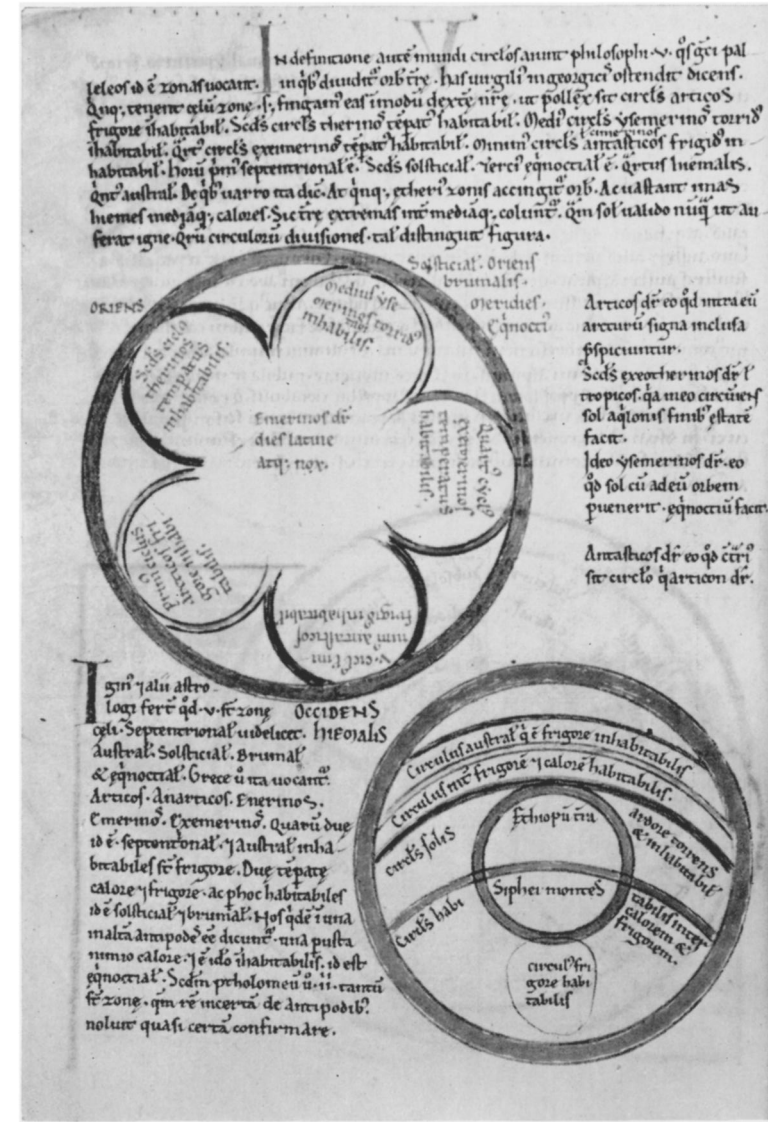 IN definitione autē mundi circlōs aiunt philosophi · v · q̄s ḡci pal
leleos id ē zonas vocant. in q̄b; dividit' orb' t̄re · has virgili' in georgicis ostendit dicens.
Quinq; tenent celū zone · s; fingam' eas in modū dextę nr̄e · ut pollex sit circl's articos
frigore īhabitabil'. Scd̄s circl's thermino' tēpat' habitabil'. Medi' circl's ysemerino' torrid'
īhabitabil'. Qrt' circl's exemerino' tēpat' habitabil'. Minim' circl's antasticos frigid' in
habitabil'. Horū prim' septentrional' ē · Scd̄s solsticial'. Terci' eq̄noctial' ē · Qrtus hiemalis.
Qnt' austral'. De q̄b; varro ita dic̄ · At q̄nq; etheri' zonis accingit' orb'. Ac vastant imas
hiemes mediaq; calores · Sic t̄re extremas int' mediaq; colunt'. Qm̄ sol valido nūq̄ ut au
ferat igne · Qrū circulorū divisiones · tal' distinguit figura.
Solsticial'. Oriens
brumalis.
Meridies.
Eq̄nocti'
ORIENS
Medius yse
merinos torrid'
inhabilis.
Scd̄s ciclus
therminos
temperatus
inhabitabilis.
Emerinos dr̄
dies latine
Atq; nox.
Quart' cycl'
exemerinos
temperatus
habitabilis.
Primus ciclus
articos fri
gore inhabi
tabilis.
v · cicl' mi
nim' antasticos
frigid' inhabitabil'
OCCIDENS
hIEMALIS
Articos dr̄ eo qd̄ intra eū
arcturū signa inclusa
p̄spiciuntur.
Scd̄s exeothermos dr̄ l'
tropicos · q̄a meo circūiens
sol aq̄lonis finib' estatē
facit.
Ideo ysemerinos dr̄ · eo
qd̄ sol cū ad eū orbem
pvenerit · eq̄noctiū facit.
Antasticos dr̄ eo qd̄ c̄tri'
sit circlo q̄ articon dr̄.
Igin' ⁊ alii astro
logi fert' qd̄ · v · st̄ zonę
cęli · Septentrional' videlicet.
Austral'. Solsticial'. Brumal'
& eq̄noctial'. Grece ū ita vocant'.
Articos · Anarticos. Enerinos.
Emerino'. Exemerino'. Quarū duę
id ē · septentrional' · ⁊ austral' inha
bitabiles st̄ frigore. Duę tēpatę
calore ⁊ frigore · ac p hoc habitabiles
id ē solsticial' ⁊ brumal'. Hos q̄dē ī una
malta antipodē eē dicunt' · una pusta
nimio calore · ⁊ ē ido īhabitabilis · id est
eq̄noctial'. Scd̄m ptholomeū ū · ii · tantū
st̄ zone · qm̄ rē incertā de antipodib'
noluit quasi certā confirmare.
Circulus austral' q̄ ē frigore inhabitabilis
Circulus int' frigorē ⁊ calorē habitabilis.
circl's solis
ardore torrens
& inhabitabil'
Ethiopū t̄ra
Siphei montes
Circl's habi
tabilis inter
calorem &
frigorem.
circul' fri
gore habi
tabilis